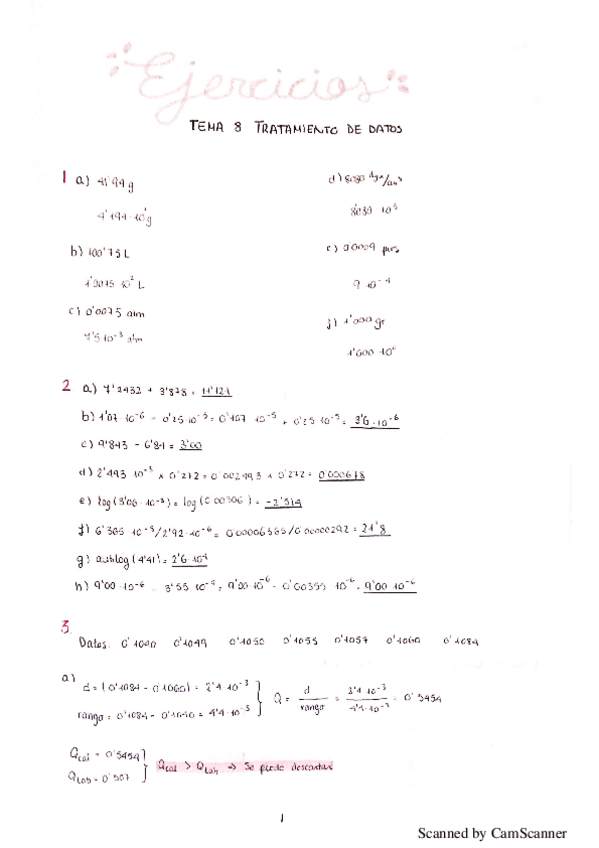 Ejercicios
TEMA 8 TRATAMIENTO DE DATOS
1 a) 41'94 g
4'194·10¹g
b) 100'75 L
1'0075 10² L
c) 0'0075 atm
7'5 10⁻³ atm
d) 8030
8'030 10³
e) 0'0009
9 10⁻⁴
f) 1'000 gr
1'000 10⁰
2 a) 7'2432 + 3'878 = 11'121
b) 1'07·10⁻⁶ - 0'25·10⁻⁵ = 0'107 ·10⁻⁵ + 0'25·10⁻⁵ = 3'6·10⁻⁶
c) 9'843 - 6'84 = 3'00
d) 2'493 10⁻³ x 0'272 = 0'002493 x 0'272 = 0'000678
e) log(3'06·10⁻³) = log(0'00306) = -2'514
f) 6'365 10⁻⁵/2'92·10⁻⁶ = 0'00006365/0'00000292 = 21'8
g) antilog (4'41) = 2'6·10⁴
h) 9'00·10⁻⁶ - 3'55 10⁻⁹ = 9'00·10⁻⁶ - 0'00355 ·10⁻⁶ = 9'00·10⁻⁶
3.
Datos: 0'1040 0'1049 0'1050 0'1055 0'1057 0'1060 0'1084
a) d = (0'1084 - 0'1060) = 2'4·10⁻³
rango = 0'1084 - 0'1040 = 4'4·10⁻³
Q = d/rango = 2'4·10⁻³/4'4·10⁻³ = 0'5454
Qcal = 0'5454
= 0'507
Qcal > ⇒ Se puede descartar
1
Scanned by CamScanner